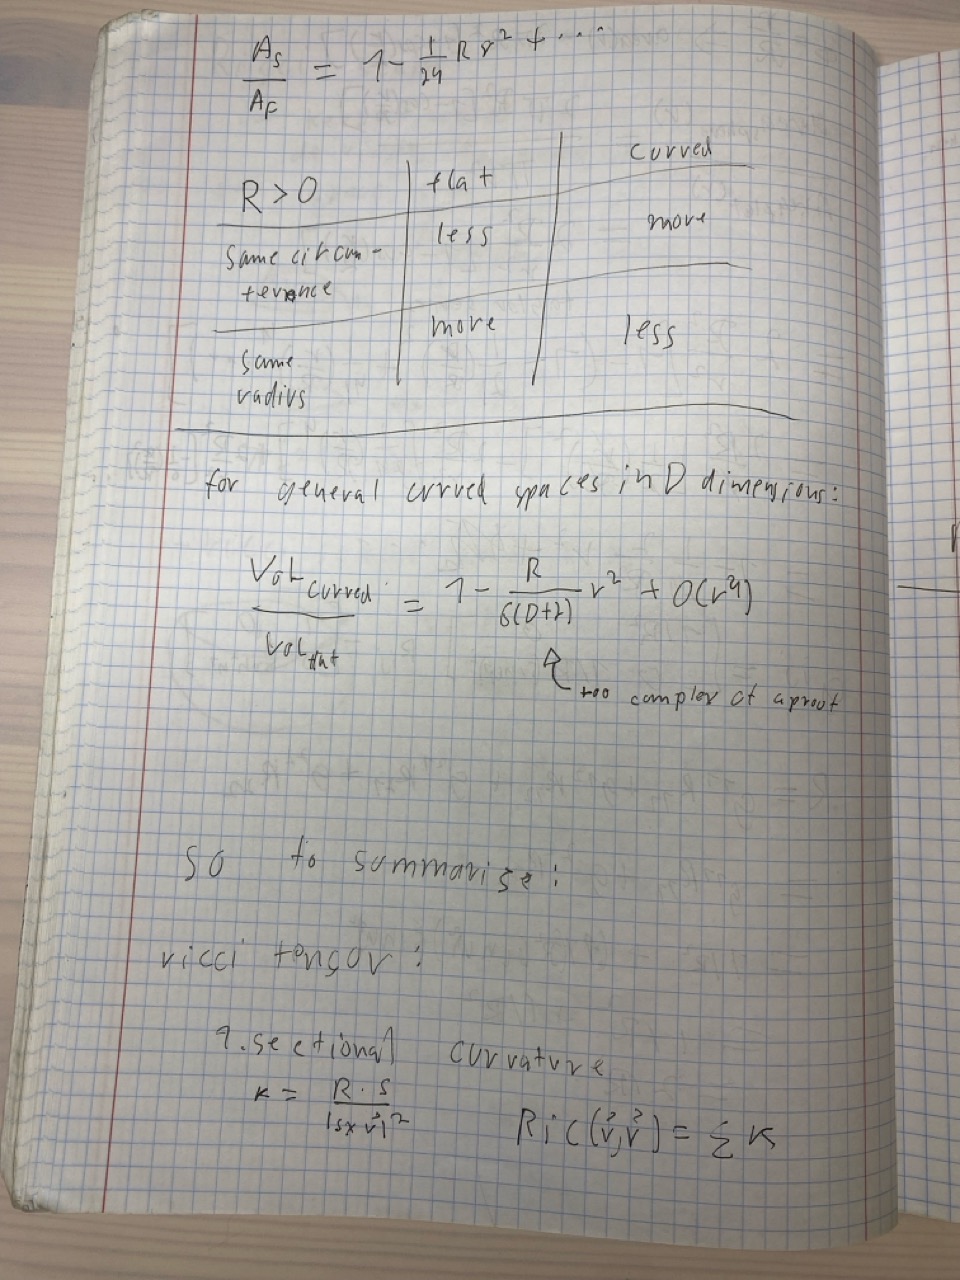 A_S / A_F = 1 - 1/24 R r² + ...
R > 0 | flat | curved
same circum- | less | more
ference
same | more | less
radius
for general curved spaces in D dimensions:
Vol_curved / Vol_flat = 1 - R / 6(D+2) r² + O(r⁴)
too complex of a proof
so to summarise:
ricci tensor:
1. sectional curvature
κ = R · S / |s × v⃗|²
Ric(v⃗, v⃗) = Σ κ